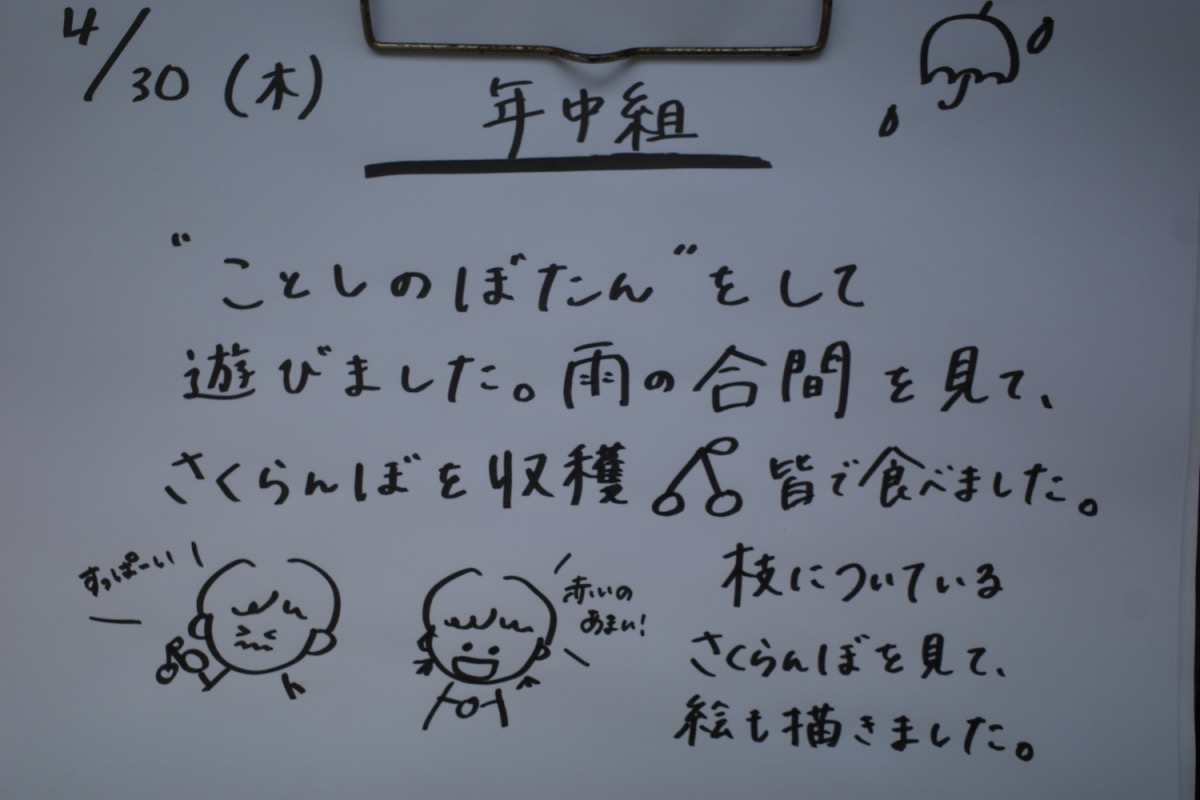 4/30 (木)
年中組
"ことしのぼたん"をして
遊びました。雨の合間を見て、
さくらんぼを収穫 皆で食べました。
すっぱーい
赤いの
あまい!
枝についている
さくらんぼを見て、
絵も描きました。